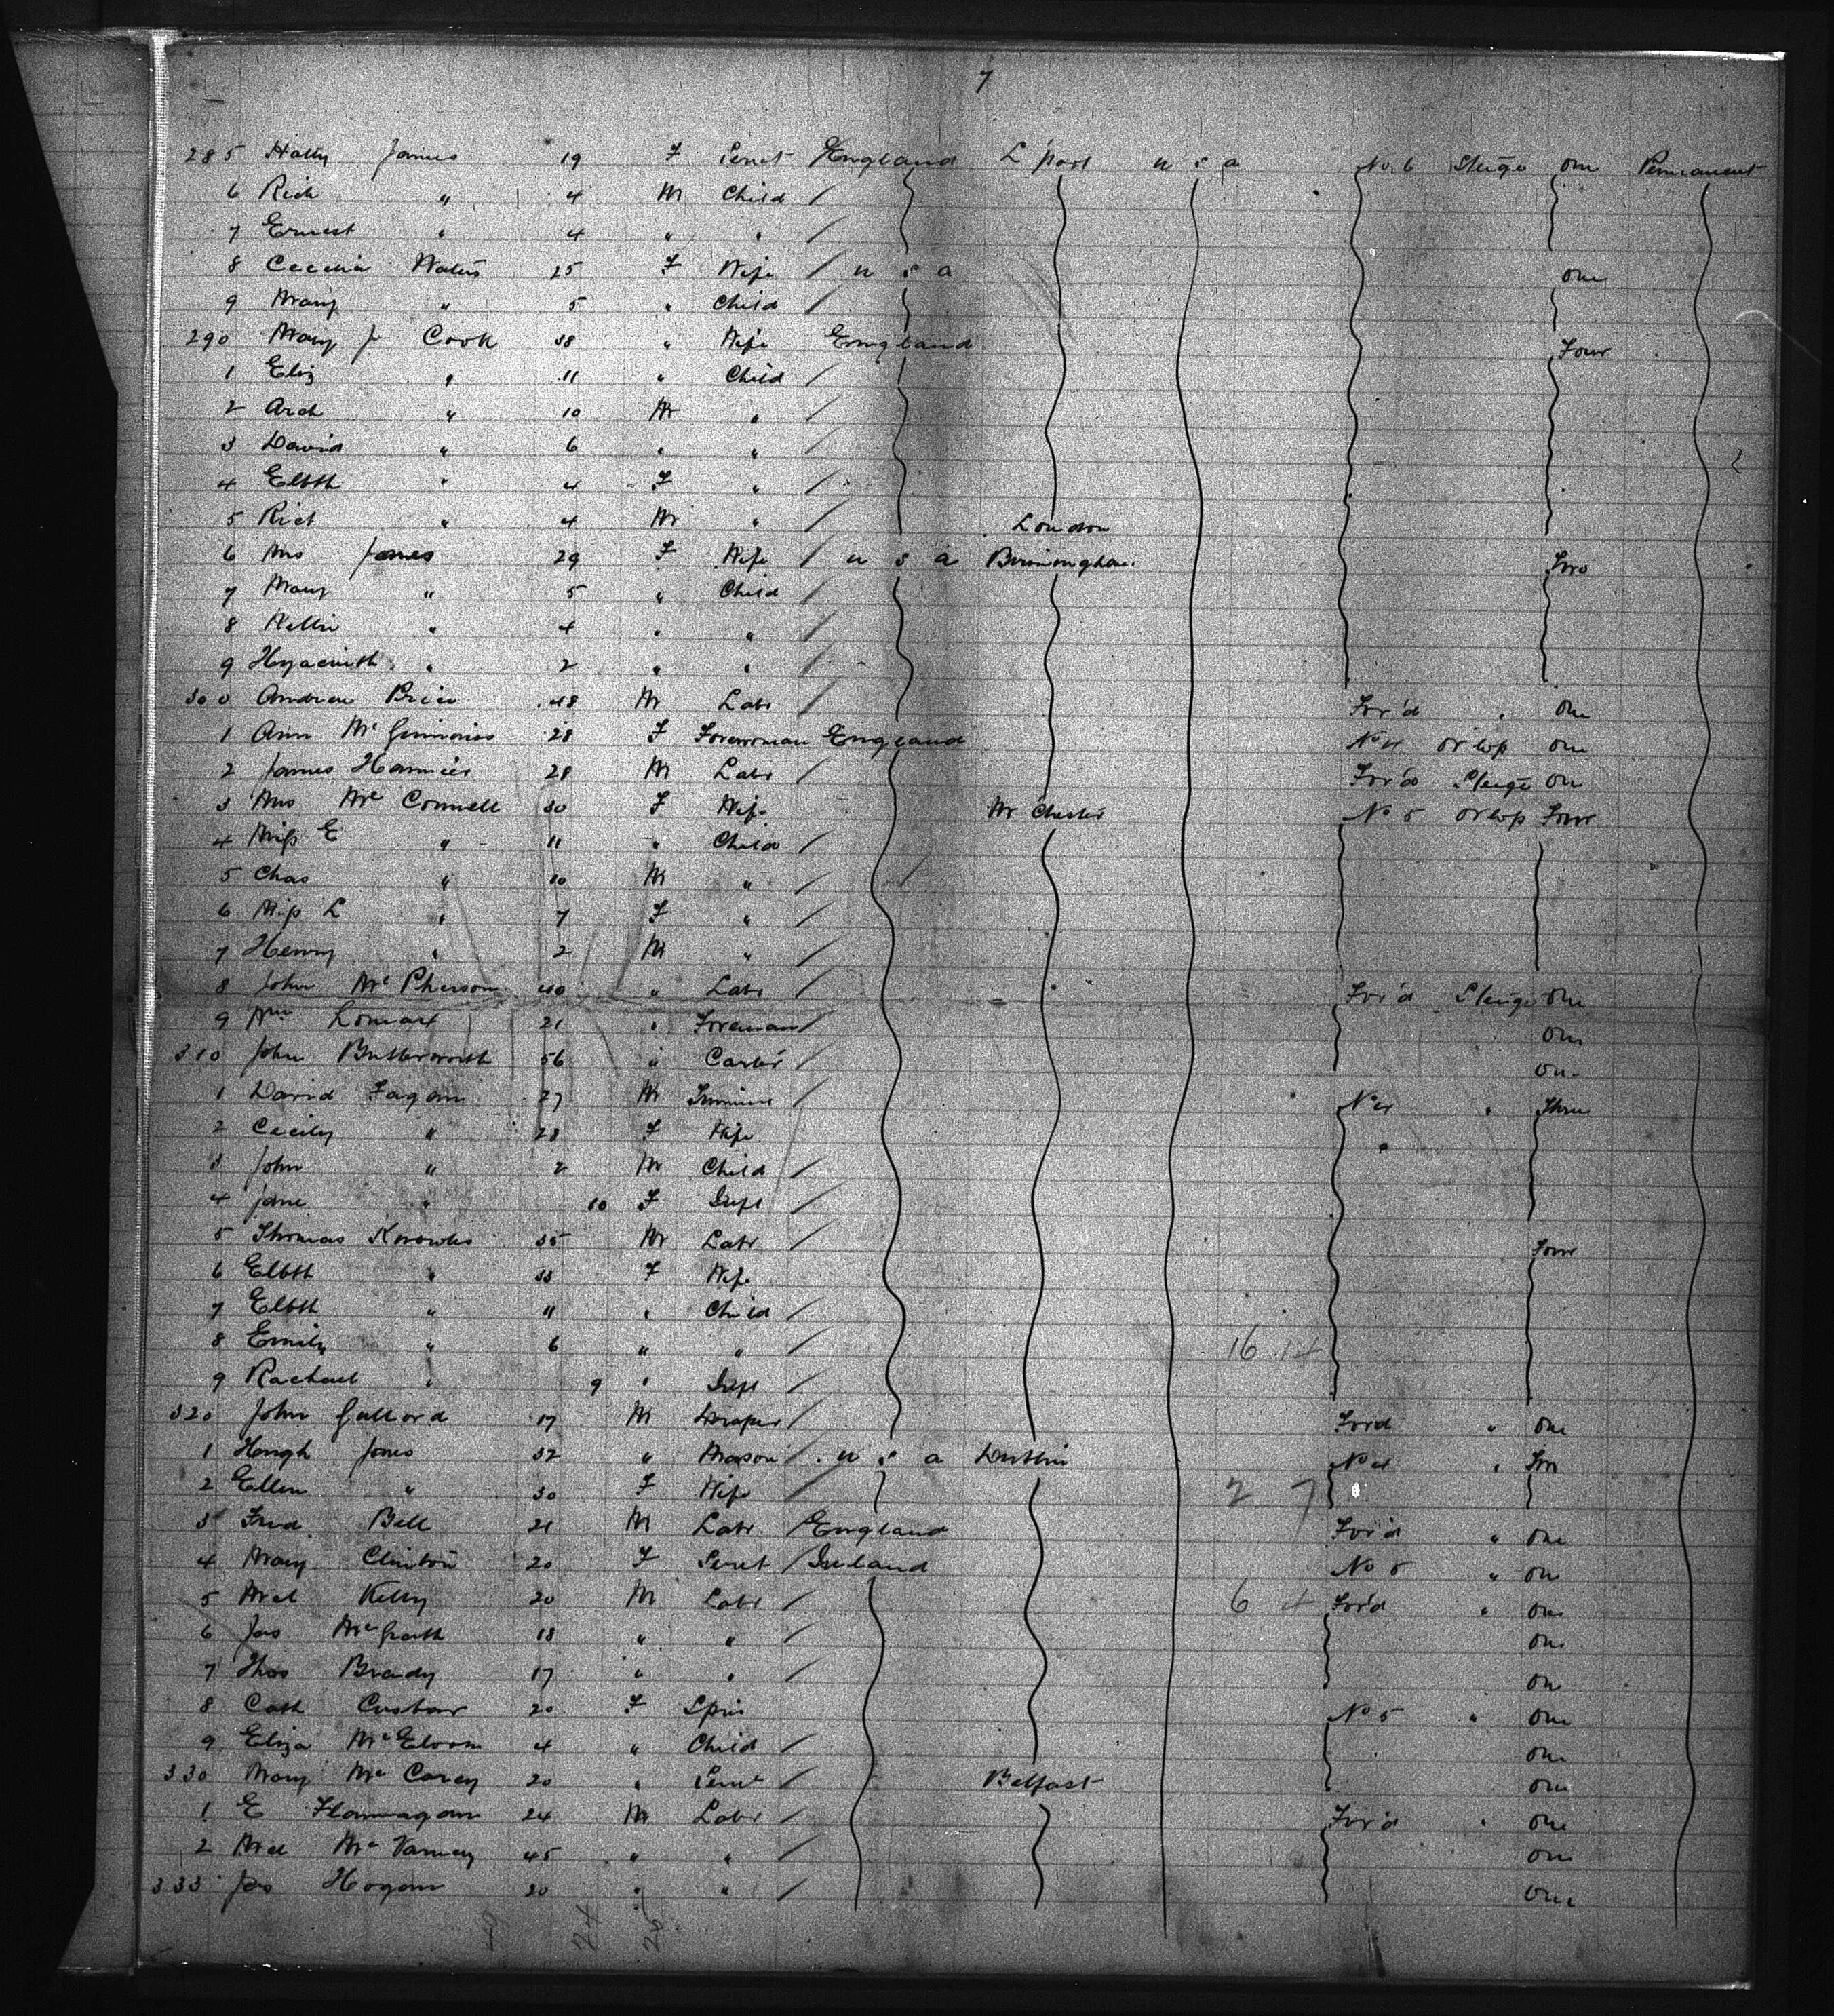 7
285 Hatty James 19 F Servt England L'pool U S A No. 6 Sterge One Permanent
6 Rich " 4 M Child /
7 Ernest " 4 " " /
8 Cecelia Waters 25 F Wife / U S A One
9 Mary " 5 " Child /
290 Mary J Cook 38 " Wife England Four
1 Eliz " 11 " Child /
2 Arch " 10 M " /
3 David " 6 " " /
4 Elbth " 4 F " /
5 Rict " 4 M " / London
6 Mrs James 29 F Wife / U S A Birmingham Two
7 Mary " 5 " Child /
8 Nellie " 4 " " /
9 Hyacinth " 2 " " /
300 Andrew Price 48 M Labr / For'd " One
1 Ann McGinnies 28 F Forewoman England No 4 Orlop One
2 James 28 M Labr / For'd Sterge One
3 Mrs McConnell 30 F Wife M'Chester No 5 Orlop Four
4 Miss E " 11 " Child /
5 Chas " 10 M " /
6 Miss L " 7 F " /
7 Henry " 2 M " /
8 John McPherson 40 " Labr / For'd Sterge One
9 Wm Lomax 21 " Foreman / One
310 John Butterworth 56 " Carter / One
1 David Fagan 27 M / No 4 " Three
2 Cecily " 28 F Wife
3 John " 2 M Child /
4 Jane " 10 F Inft /
5 Thomas Knowles 35 M Labr / Four
6 Elbth " 33 F Wife
7 Elbth " 11 " Child /
8 Emily " 6 " " / 16 14
9 Rachael " 9 " Inft /
320 John 17 M Draper / Ford " One
1 Hugh Jones 32 " Mason / U S A Dublin No 4 " Two
2 Ellen " 30 F Wife / 2 7
3 Fred Bell 21 M Labr / England For'd " One
4 Mary Clinton 20 F Servt / Ireland No 5 " One
5 Mcl Kelly 20 M Labr / 6 4 For'd " One
6 Jas McGrath 18 " " / One
7 Thos Brady 17 " " / One
8 Cath 20 F Spin No 5 " One
9 Eliza 4 " Child / One
330 Mary McCarey 20 " Servt / Belfast One
1 E Flannagan 24 M Labr / For'd " One
2 Mcl 45 " " / One
333 Jas Hogan 20 " " / One
24 26